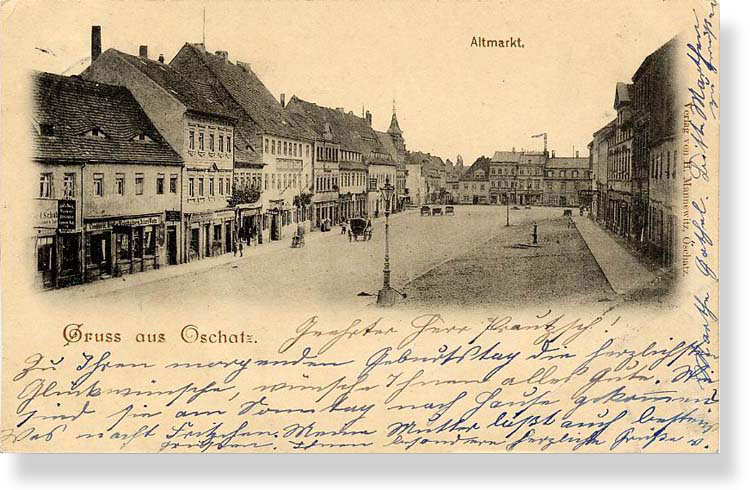 Altmarkt.
Verlag von H. Mannewitz, Oschatz.
Gruss aus Oschatz.
Geehrter Herr Prautzsch!
Zu Ihren morgenden Geburtstag die herzlichsten
Glückwünsche, wünsche Ihnen alles Gute.
sind sie am Sonntag nach Hause gekommen
Was macht Fritzchen. Meine Mutter läßt auch bestens
grüßen. Ihnen besondere herzliche Grüße v.